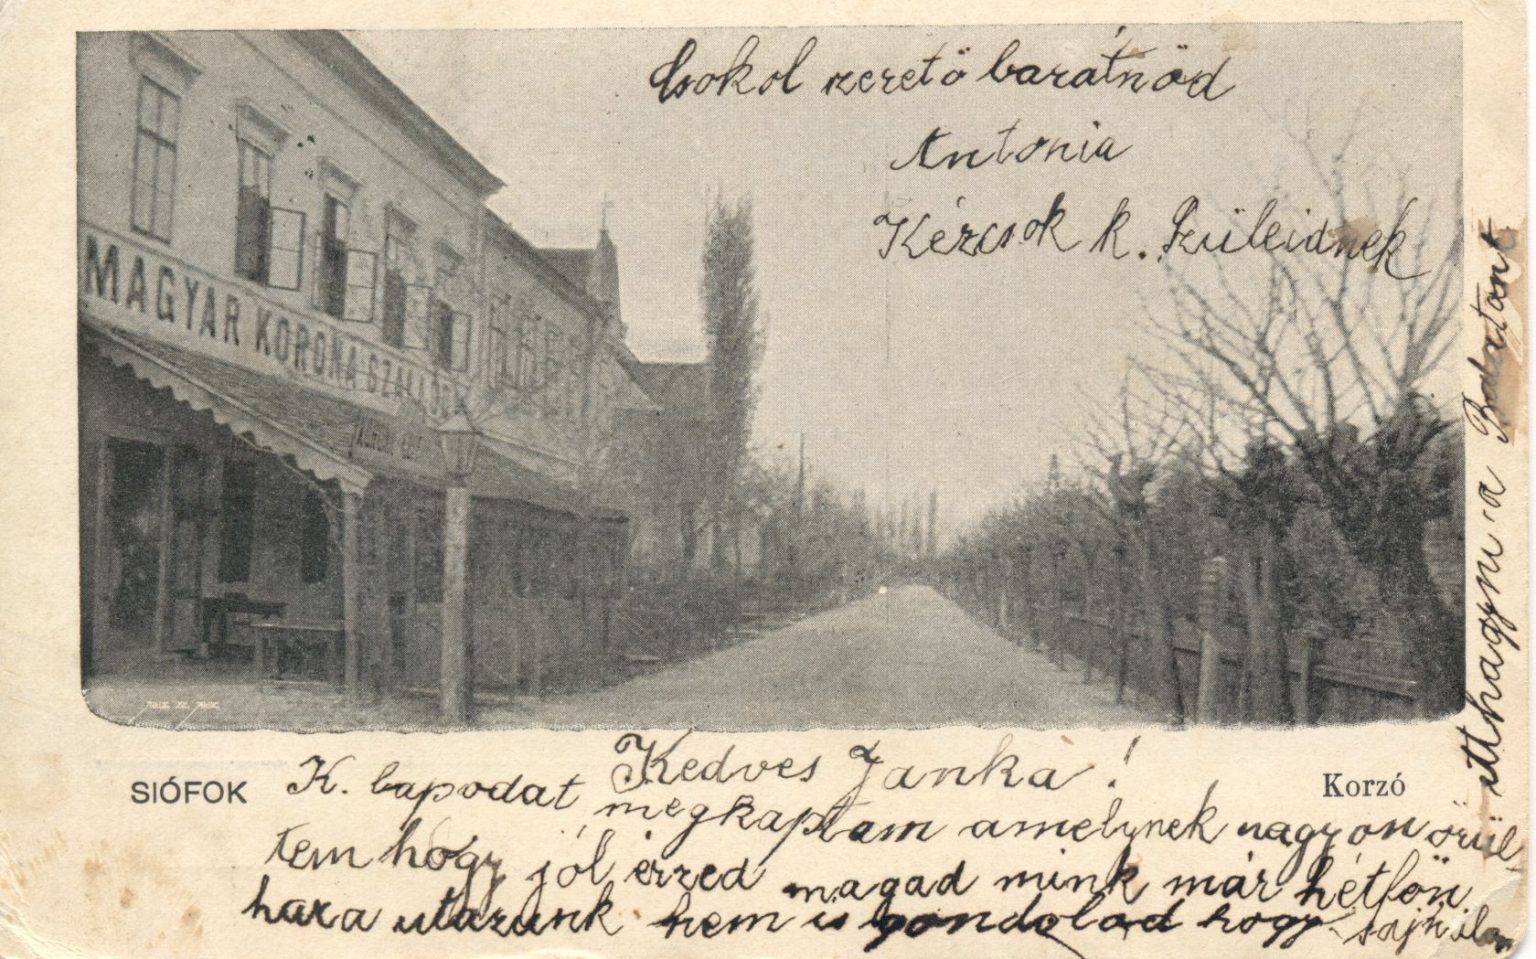 Csokol szerető barátnöd
Antonia
Kézcsok k. Szüleidnek
MAGYAR KORONA SZÁLLODA
SIÓFOK
Korzó
Kedves Janka!
K. lapodat megkaptam amelynek nagyon örül
tem hogy jól érzed magad mink már hétfön
haza utazunk nem is gondolod hogy sajnálom
itthagyni a Balatont